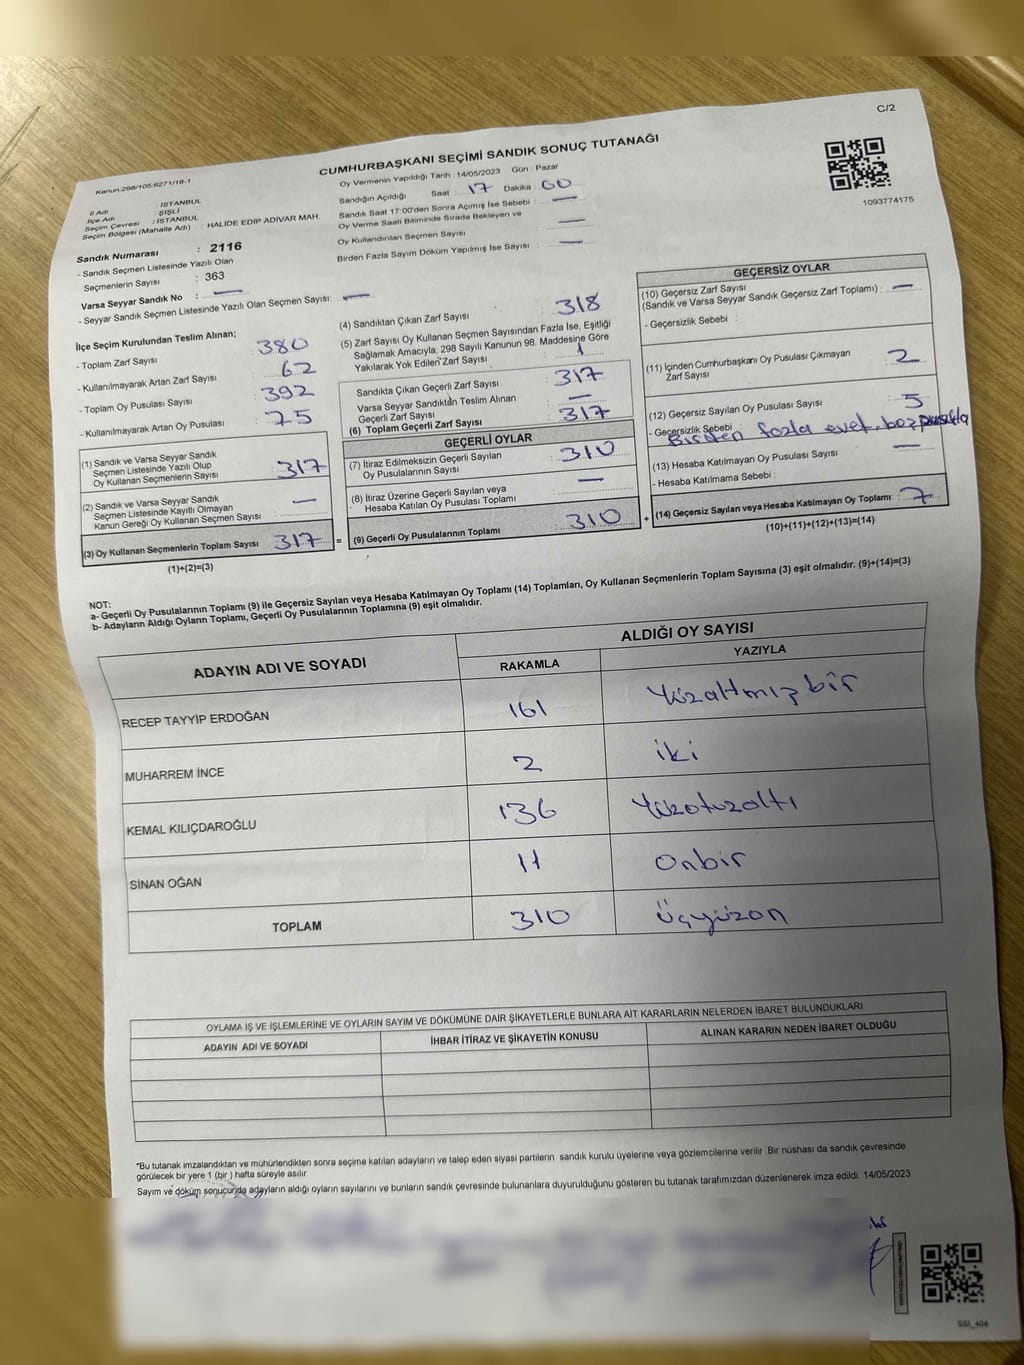 C/2
Kanun:298/105;6271/16-1
CUMHURBAŞKANI SEÇİMİ SANDIK SONUÇ TUTANAĞI
1093774175
İl Adı : İSTANBUL
İlçe Adı : ŞİŞLİ
Seçim Çevresi : İSTANBUL
Seçim Bölgesi (Mahalle Adı) : HALİDE EDİP ADIVAR MAH.
Sandık Numarası : 2116
- Sandık Seçmen Listesinde Yazılı Olan
Seçmenlerin Sayısı : 363
Varsa Seyyar Sandık No : —
- Seyyar Sandık Seçmen Listesinde Yazılı Olan Seçmen Sayısı: —
Oy Vermenin Yapıldığı Tarih : 14/05/2023 Gün : Pazar
Sandığın Açıldığı Saat : 17 Dakika : 00
Sandık Saat 17:00'den Sonra Açımış İse Sebebi : —
Oy Verme Saati Bitiminde Sırada Bekleyen ve
Oy Kullandırılan Seçmen Sayısı : —
Birden Fazla Sayım Döküm Yapılmış İse Sayısı : —
İlçe Seçim Kurulundan Teslim Alınan;
- Toplam Zarf Sayısı : 380
- Kullanılmayarak Artan Zarf Sayısı : 62
- Toplam Oy Pusulası Sayısı : 392
- Kullanılmayarak Artan Oy Pusulası : 75
(1) Sandık ve Varsa Seyyar Sandık
Seçmen Listesinde Yazılı Olup
Oy Kullanan Seçmenlerin Sayısı : 317
(2) Sandık ve Varsa Seyyar Sandık
Seçmen Listesinde Kayıtlı Olmayan
Kanun Gereği Oy Kullanan Seçmen Sayısı : —
(3) Oy Kullanan Seçmenlerin Toplam Sayısı : 317
(1)+(2)=(3)
(4) Sandıktan Çıkan Zarf Sayısı : 318
(5) Zarf Sayısı Oy Kullanan Seçmen Sayısından Fazla İse, Eşitliği
Sağlamak Amacıyla; 298 Sayılı Kanunun 98. Maddesine Göre
Yakılarak Yok Edilen Zarf Sayısı : 1
Sandıkta Çıkan Geçerli Zarf Sayısı : 317
Varsa Seyyar Sandıktan Teslim Alınan
Geçerli Zarf Sayısı : —
(6) Toplam Geçerli Zarf Sayısı : 317
GEÇERLİ OYLAR
(7) İtiraz Edilmeksizin Geçerli Sayılan
Oy Pusulalarının Sayısı : 310
(8) İtiraz Üzerine Geçerli Sayılan veya
Hesaba Katılan Oy Pusulası Toplamı : —
= (9) Geçerli Oy Pusulalarının Toplamı : 310
GEÇERSİZ OYLAR
(10) Geçersiz Zarf Sayısı
(Sandık ve Varsa Seyyar Sandık Geçersiz Zarf Toplamı) : —
- Geçersizlik Sebebi :
(11) İçinden Cumhurbaşkanı Oy Pusulası Çıkmayan
Zarf Sayısı : 2
(12) Geçersiz Sayılan Oy Pusulası Sayısı : 5
- Geçersizlik Sebebi : Birden fazla evet, boş pusula
(13) Hesaba Katılmayan Oy Pusulası Sayısı : —
- Hesaba Katılmama Sebebi :
+ (14) Geçersiz Sayılan veya Hesaba Katılmayan Oy Toplamı : 7
(10)+(11)+(12)+(13)=(14)
NOT:
a- Geçerli Oy Pusulalarının Toplamı (9) ile Geçersiz Sayılan veya Hesaba Katılmayan Oy Toplamı (14) Toplamları, Oy Kullanan Seçmenlerin Toplam Sayısına (3) eşit olmalıdır. (9)+(14)=(3)
b- Adayların Aldığı Oyların Toplamı, Geçerli Oy Pusulalarının Toplamına (9) eşit olmalıdır.
ADAYIN ADI VE SOYADI
ALDIĞI OY SAYISI
RAKAMLA YAZIYLA
RECEP TAYYİP ERDOĞAN 161 Yüzaltmışbir
MUHARREM İNCE 2 iki
KEMAL KILIÇDAROĞLU 136 Yüzotuzaltı
SİNAN OĞAN 11 Onbir
TOPLAM 310 Üçyüzon
OYLAMA İŞ VE İŞLEMLERİNE VE OYLARIN SAYIM VE DÖKÜMÜNE DAİR ŞİKAYETLERLE BUNLARA AİT KARARLARIN NELERDEN İBARET BULUNDUKLARI
ADAYIN ADI VE SOYADI İHBAR İTİRAZ VE ŞİKAYETİN KONUSU ALINAN KARARIN NEDEN İBARET OLDUĞU
*Bu tutanak imzalandıktan ve mühürlendikten sonra seçime katılan adayların ve talep eden siyasi partilerin sandık kurulu üyelerine veya gözlemcilerine verilir. Bir nüshası da sandık çevresinde
görülecek bir yere 1 (bir ) hafta süreyle asılır.
Sayım ve döküm sonucunda adayların aldığı oyların sayılarını ve bunların sandık çevresinde bulunanlara duyurulduğunu gösteren bu tutanak tarafımızdan düzenlenerek imza edildi. 14/05/2023